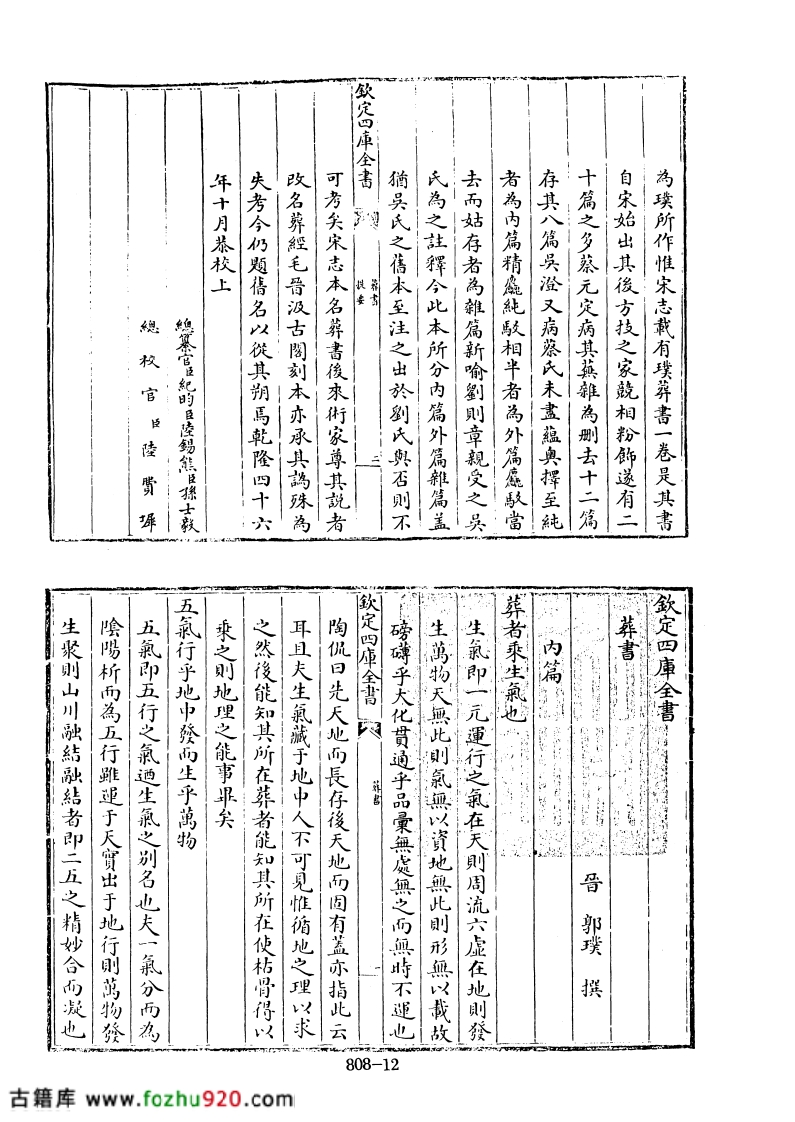 為璞所作惟宋志載有璞葬書一卷是其書
自宋始出其後方技之家競相粉飾遂有二
十篇之多蔡元定病其蕪雜為刪去十二篇
存其八篇吳澄又病蔡氏未盡蘊奧擇至純
者為内篇精麤純駁相半者為外篇麤駁當
去而姑存者為雜篇新喻劉則章親受之吳
氏為之註釋今此本所分内篇外篇雜篇蓋
猶吳氏之舊本至注之出於劉氏與否則不
欽定四庫全書
葬書
提要
二
可考矣宋志本名葬書後來術家尊其說者
改名葬經毛晉汲古閣刻本亦承其譌殊為
失考今仍題舊名以從其朔焉乾隆四十六
年十月恭校上
總纂官臣紀昀臣陸錫熊臣孫士毅
總校官臣陸費墀
欽定四庫全書
葬書
晉 郭璞 撰
内篇
葬者乘生氣也
生氣即一元運行之氣在天則周流六虛在地則發
生萬物天無此則氣無以資地無此則形無以載故
磅礴乎大化貫通乎品彙無處無之而無時不運也
欽定四庫全書
葬書
一
陶侃曰先天地而長存後天地而固有蓋亦指此云
耳且夫生氣藏于地中人不可見惟循地之理以求
之然後能知其所在葬者能知其所在使枯骨得以
乘之則地理之能事畢矣
五氣行乎地中發而生乎萬物
五氣即五行之氣迺生氣之別名也夫一氣分而為
陰陽析而為五行雖運于天實出于地行則萬物發
生聚則山川融結融結者即二五之精妙合而凝也
808-12
古籍库 www.fozhu920.com